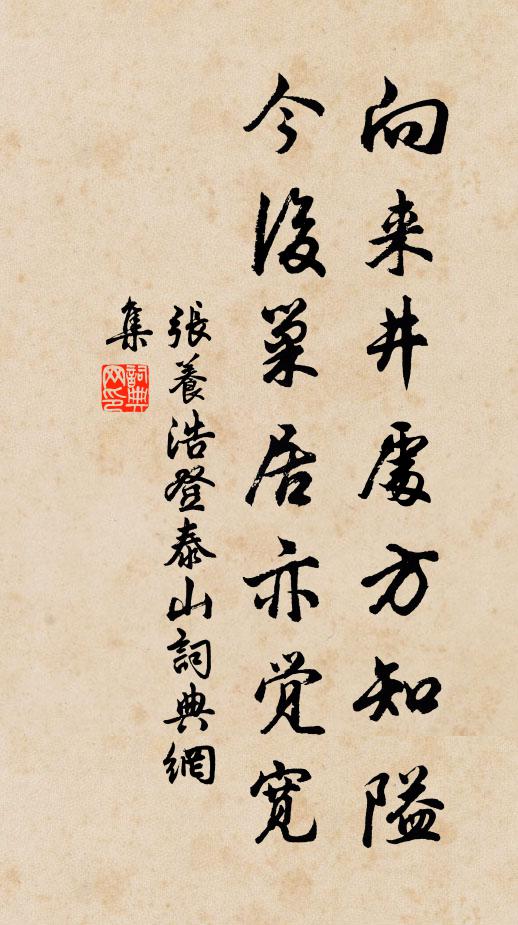 向来井處方知隘
今後巢居亦覺寬
張養浩登泰山詞典網
集
詞典網印